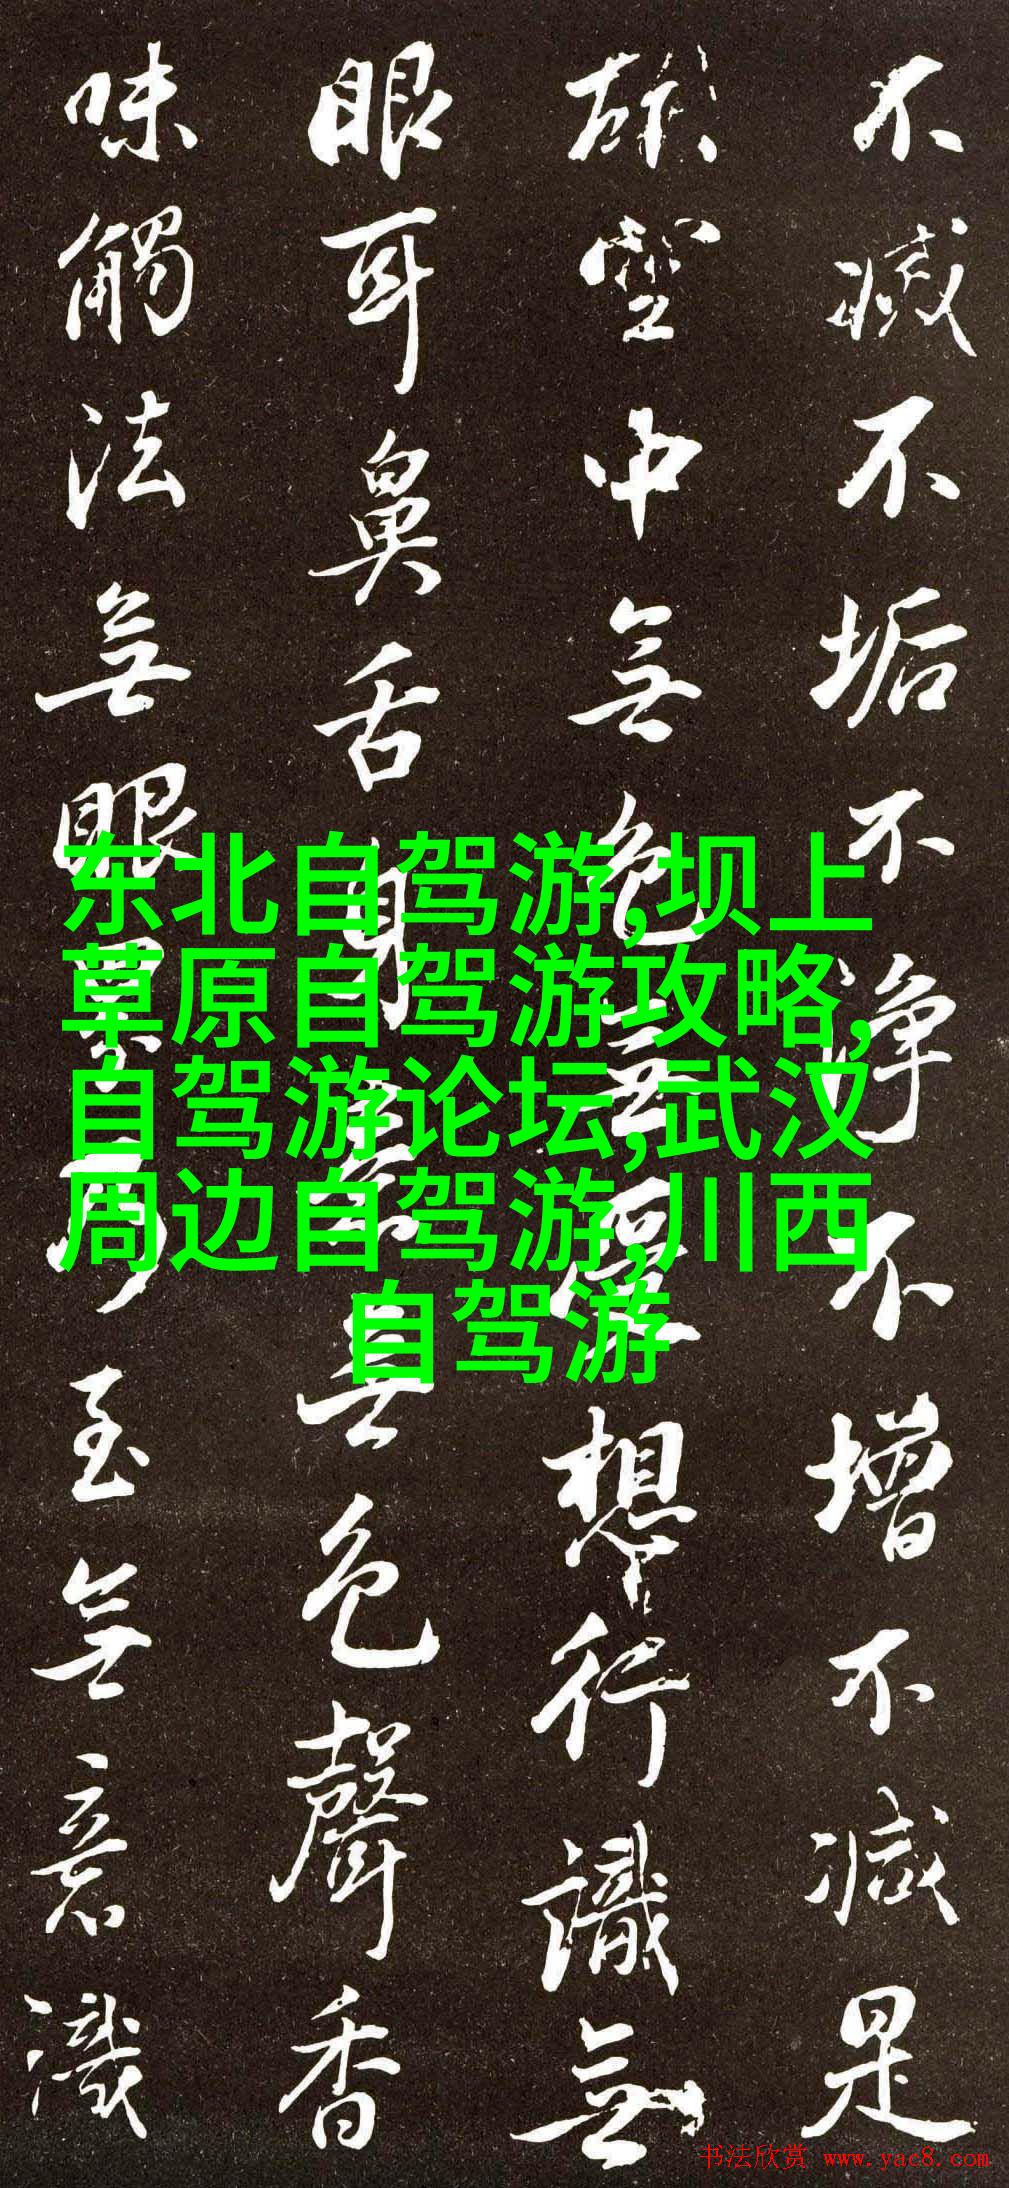 不滅不垢不淨不增不減是
故空中無色無受想行識無
眼耳鼻舌身意無色聲香
味觸法無眼界乃至無意識
东北自驾游,坝上
草原自驾游攻略,
自驾游论坛,武汉
周边自驾游,川西
自驾游
书法欣赏 www.yac8.com